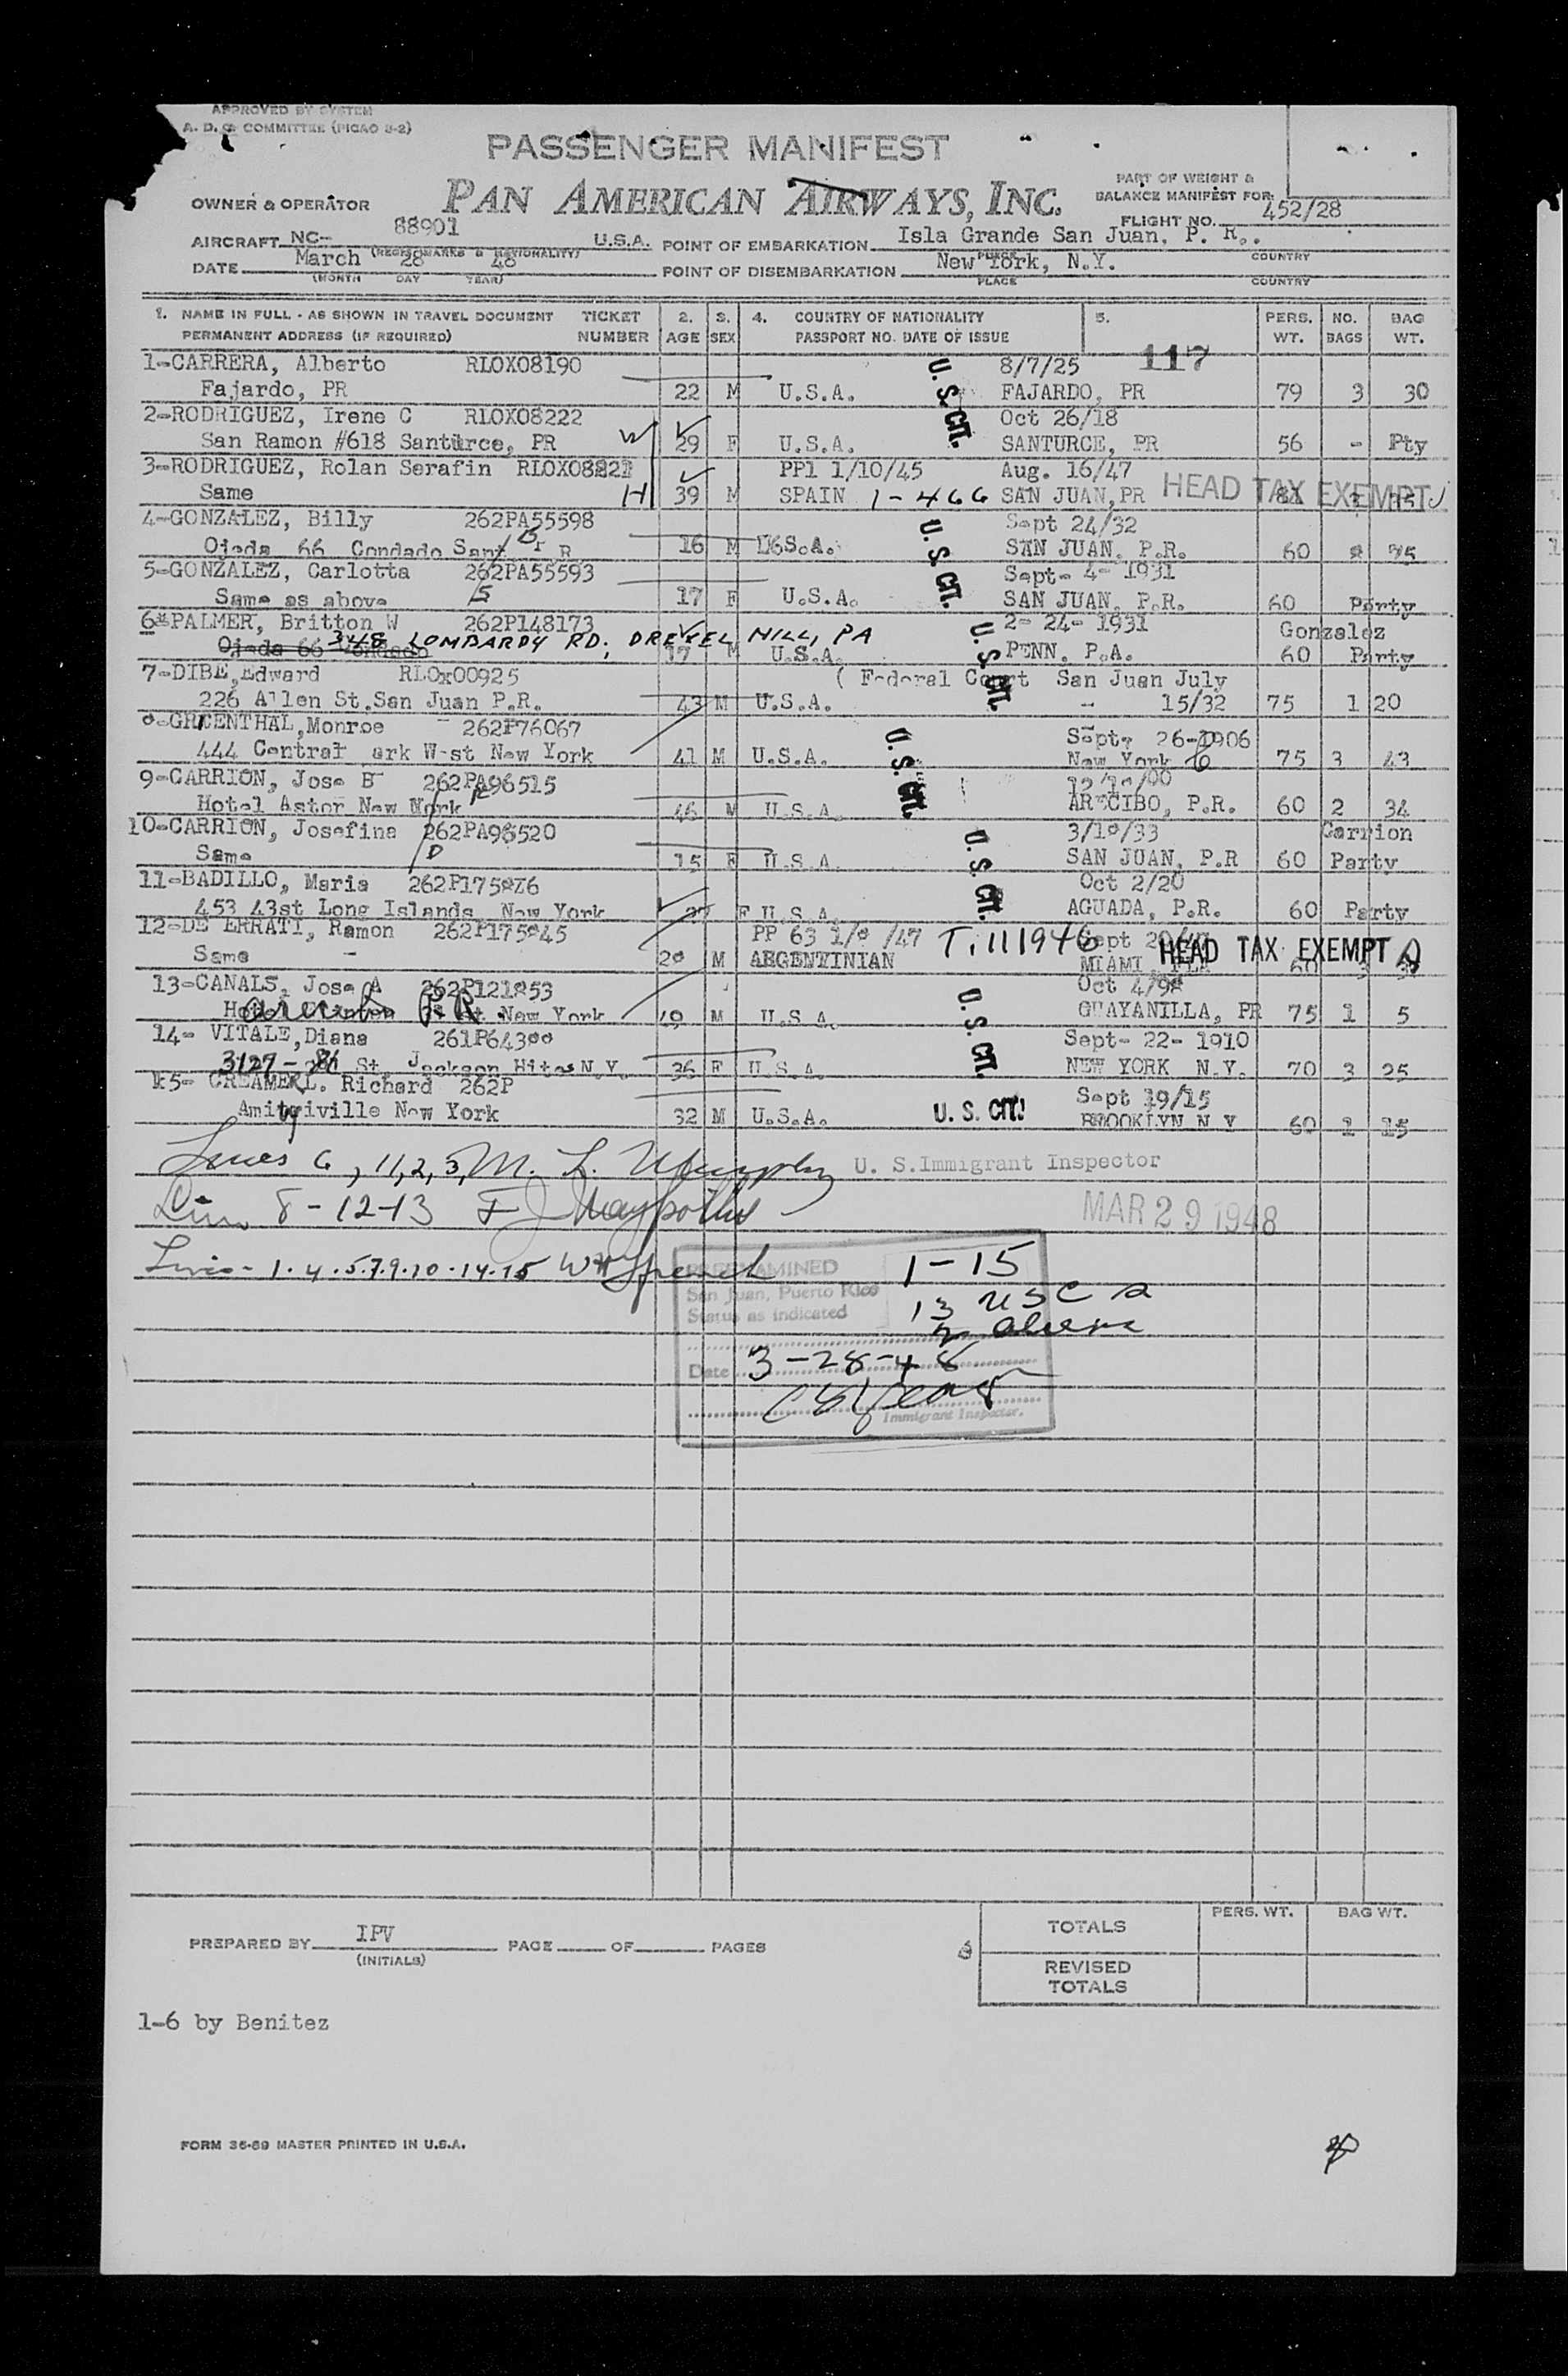 APPROVED BY SYSTEM
A. D. C. COMMITTEE (PICAO 3-2)
PASSENGER MANIFEST
PAN AMERICAN AIRWAYS, INC.
PART OF WEIGHT &
BALANCE MANIFEST FOR:
OWNER & OPERATOR
FLIGHT NO. 452/28
AIRCRAFT NC- 88901 U.S.A. POINT OF EMBARKATION Isla Grande San Juan, P. R..
DATE March 28 48 POINT OF DISEMBARKATION New York, N.Y.
(MONTH DAY YEAR) PLACE COUNTRY
1. NAME IN FULL - AS SHOWN IN TRAVEL DOCUMENT TICKET 2. 3. 4. COUNTRY OF NATIONALITY 5. PERS. NO. BAG
PERMANENT ADDRESS (IF REQUIRED) NUMBER AGE SEX PASSPORT NO. DATE OF ISSUE WT. BAGS WT.
117
1-CARRERA, Alberto RLOX08190 8/7/25
Fajardo, PR 22 M U.S.A. U.S. CIT. FAJARDO, PR 79 3 30
2-RODRIGUEZ, Irene C RLOX08222 Oct 26/18
San Ramon #618 Santurce, PR W 29 F U.S.A. SANTURCE, PR 56 - Pty
3-RODRIGUEZ, Rolan Serafin PP1 1/10/45 Aug. 16/47
Same H 39 M SPAIN 1-466 SAN JUAN, PR HEAD TAX EXEMPT
4-GONZALEZ, Billy 262PA55598 Sept 24/32
Ojeda 66 Condado Sant. P R 16 M U.S.A. U.S. CIT. SAN JUAN, P.R. 60 75
5-GONZALEZ, Carlotta 262PA55593 Sept- 4- 1931
Same as above 17 F U.S.A. SAN JUAN, P.R. 60 Party
6-PALMER, Britton W 262P148173 2- 24- 1931 Gonzalez
Ojeda 66 Condado LOMBARDY RD; DREXEL HILL, PA 17 M U.S.A. U.S. CIT. PENN. P.A. 60 Party
7-DIBE,Edward RLOx00925 ( Federal Court San Juan July
226 Allen St.San Juan P.R. 43 M U.S.A. - 15/32 75 1 20
8-GREENTHAL,Monroe 262P76067 Sept- 26-1906
444 Central ark W-st New York 41 M U.S.A. U.S. CIT. New York 75 3 43
9-CARRION, Jose B 262PA96515
Hotel Astor New York 46 M U.S.A. ARECIBO, P.R. 60 2 34
10-CARRION, Josefina 3/10/33 Carrion
Same 15 F U.S.A. U.S. CIT. SAN JUAN, P.R 60 Party
11-BADILLO, Maria Oct 2/20
453 43st Long Islands, New York F U.S.A. AGUADA, P.R. 60 Party
12-DE ERRATI, Ramon PP 63
Same M ARGENTINIAN T.111946 MIAMI, FLA HEAD TAX EXEMPT
13-CANALS, Jose A 262P121853 Oct 4/98
P.R. New York 49 M U.S.A. U.S. CIT. GUAYANILLA, PR 75 1 5
14- VITALE,Diana Sept- 22- 1910
3127 - St. Jackson Hites N.Y. 36 F U.S.A. NEW YORK N.Y. 70 3 25
15- CREAMER,L. Richard 262P Sept 19/15
Amityville New York 32 M U.S.A. U. S. CIT. BROOKLYN N Y 60 1 15
Lines 6, 11, 2, 3, M. L. Murphy U. S.Immigrant Inspector
Lines 8 - 12-13
MAR 29 1948
Lines - 1.4.5.7.9.10.14.15
PREEXAMINED 1-15
San Juan, Puerto Rico 13 USC
Status as indicated 2 aliens
Date 3-28-48
Immigrant Inspector.
PREPARED BY IPV PAGE OF PAGES
(INITIALS)
PERS. WT. BAG WT.
TOTALS
REVISED
TOTALS
1-6 by Benitez
FORM 36-69 MASTER PRINTED IN U.S.A.